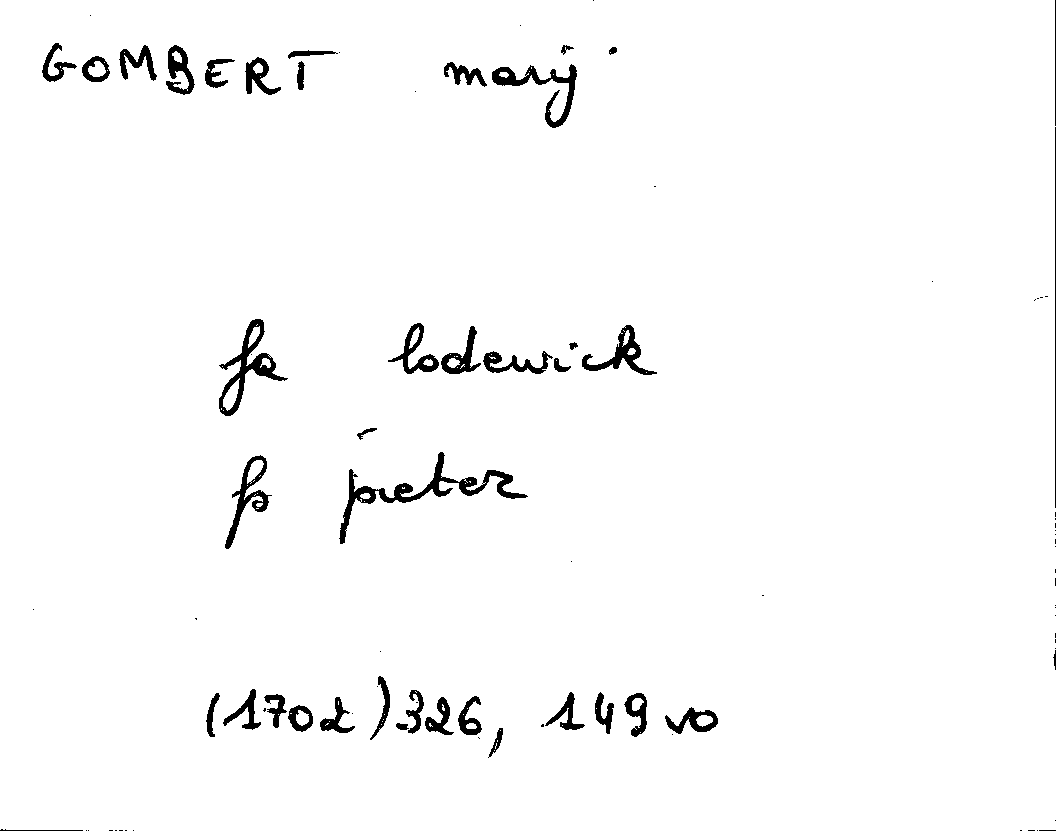 GOMBERT marij
fa lodewick
fs pieter
(1702) 326, 149 vo